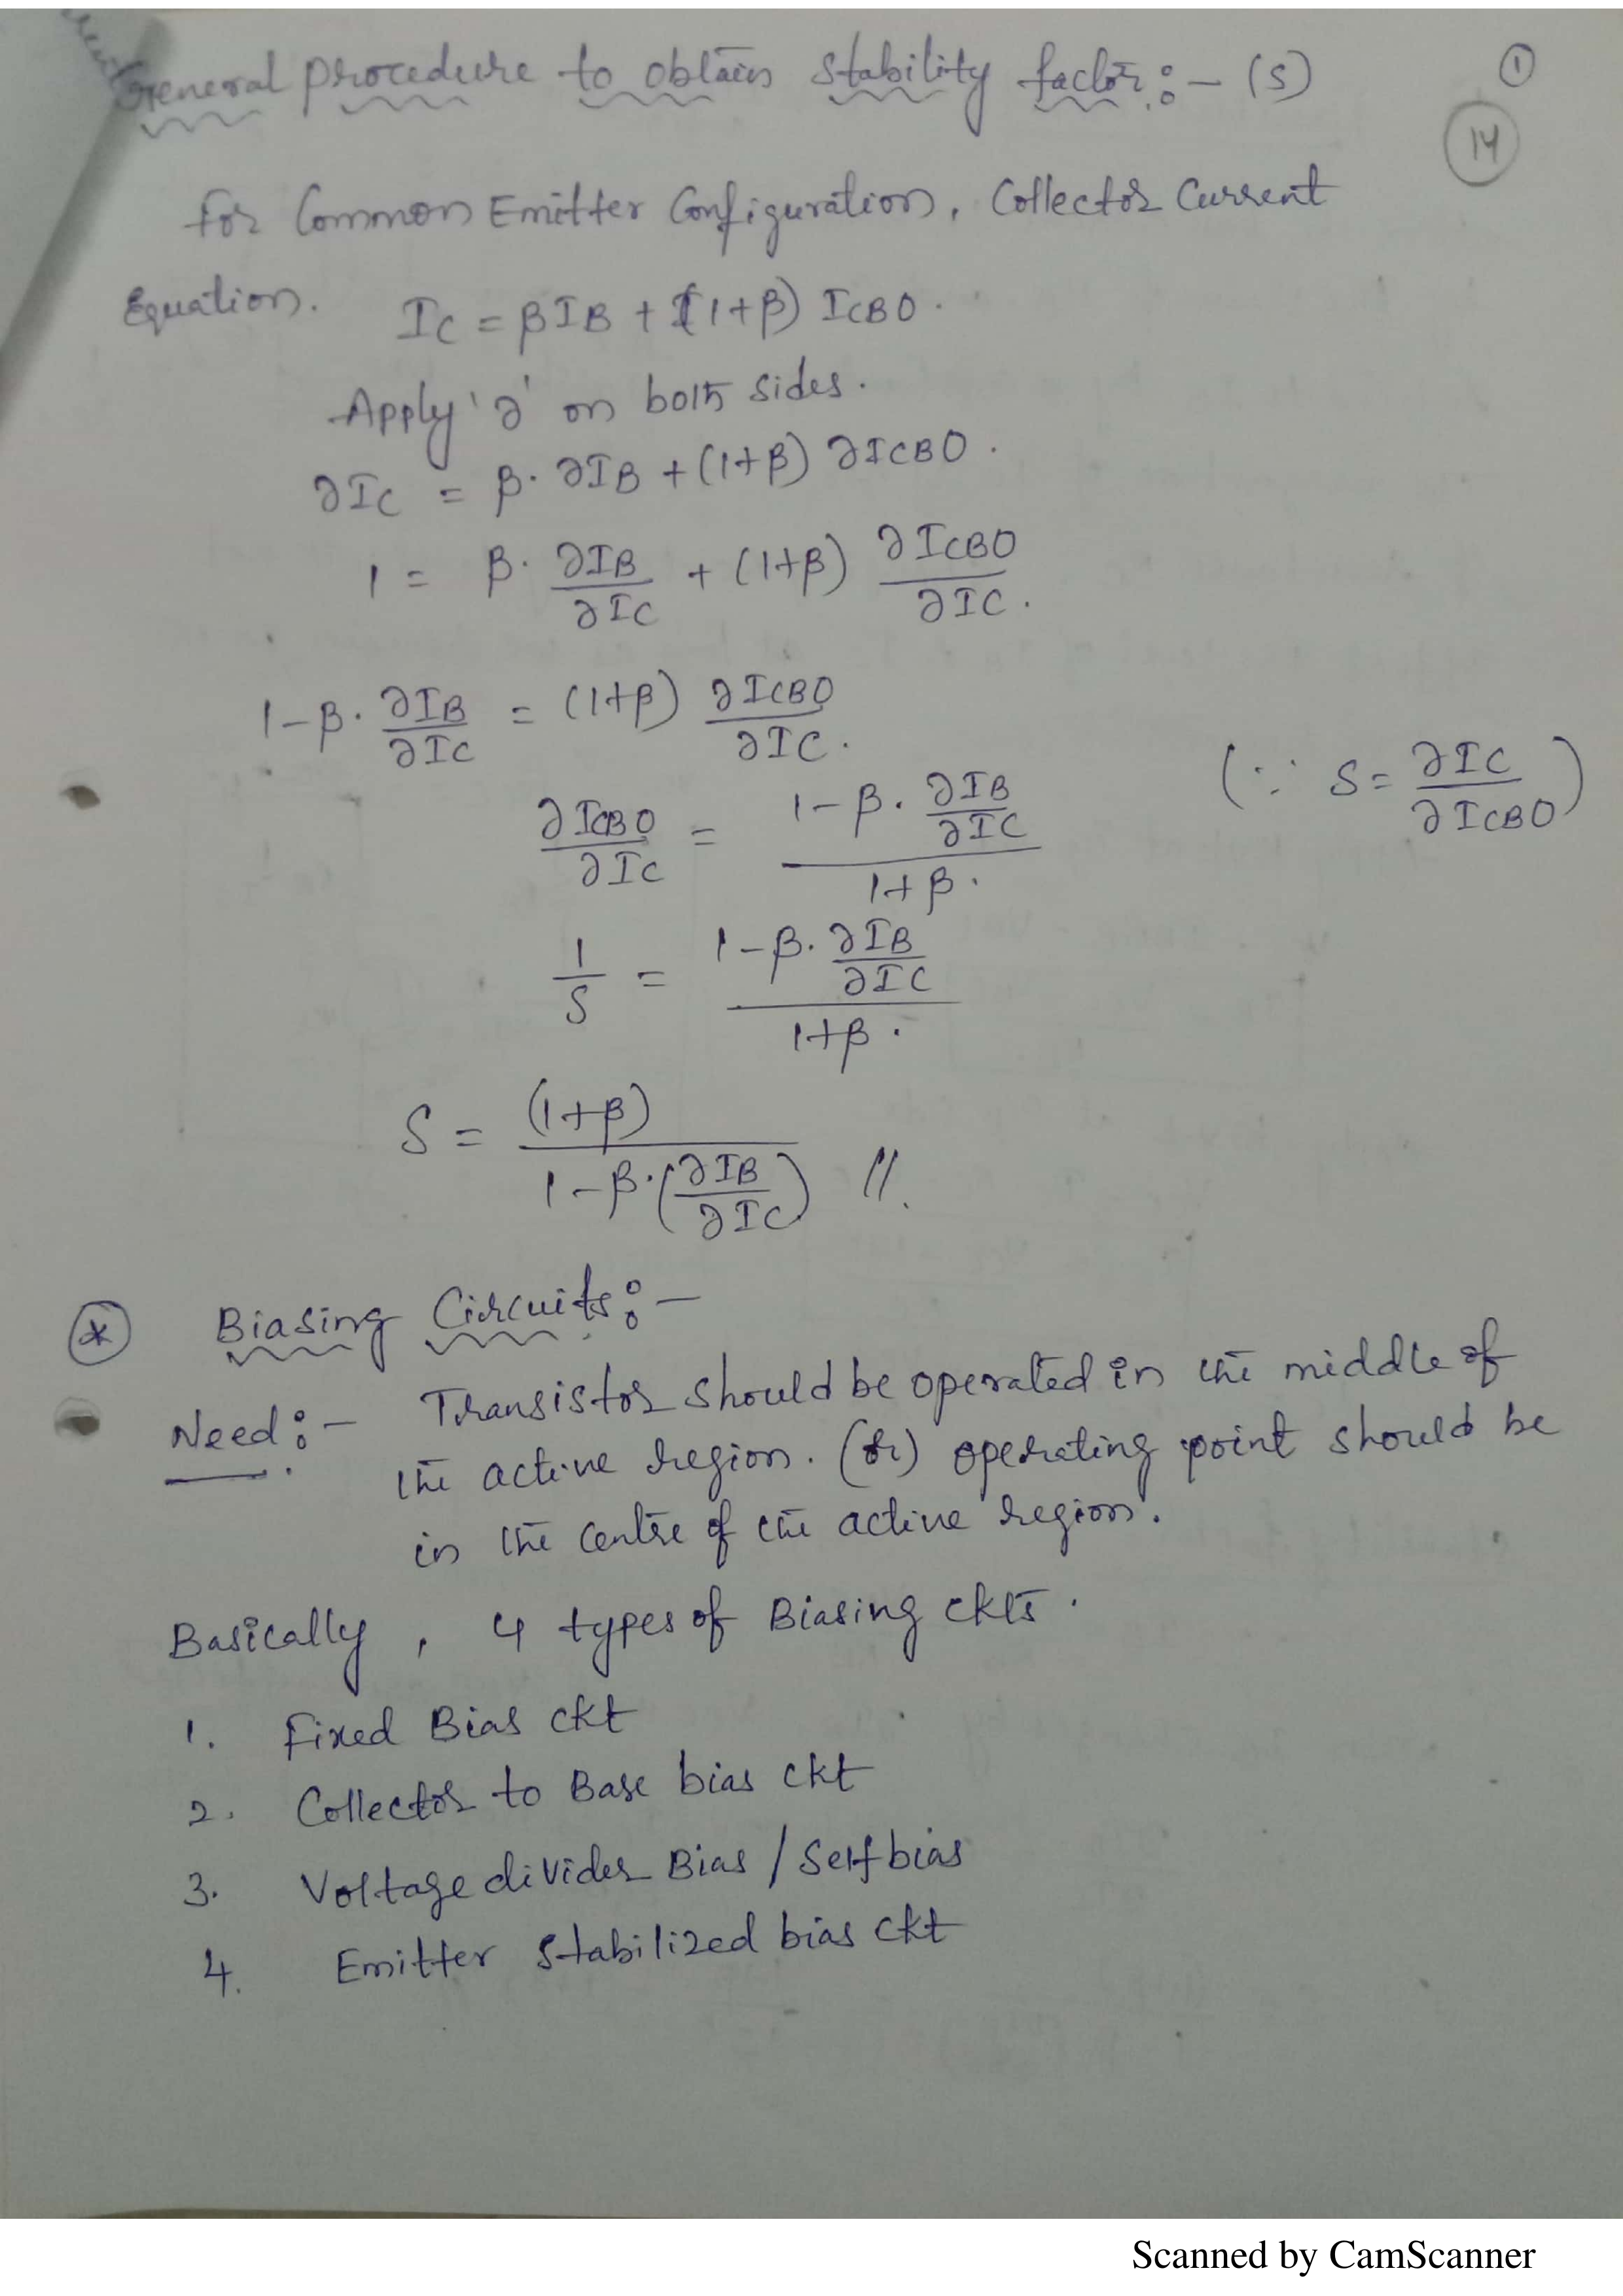 General procedure to obtain stability factor :- (S)
①
14
For Common Emitter Configuration, Collector Current
Equation. IC = βIB + (1+β) ICBO.
Apply '∂' on both sides.
∂IC = β. ∂IB + (1+β) ∂ICBO.
1 = β. ∂IB/∂IC + (1+β) ∂ICBO/∂IC.
1-β. ∂IB/∂IC = (1+β) ∂ICBO/∂IC.
∂ICBO/∂IC = (1-β. ∂IB/∂IC)/(1+β). (∵ S = ∂IC/∂ICBO)
1/S = (1-β. ∂IB/∂IC)/(1+β).
S = (1+β)/(1-β.(∂IB/∂IC)) //.
* Biasing Circuits :-
Need :- Transistor should be operated in the middle of
the active region. (or) operating point should be
in the centre of the active region.
Basically, 4 types of Biasing ckts.
1. Fixed Bias ckt
2. Collector to Base bias ckt
3. Voltage divider Bias / Self bias
4. Emitter Stabilized bias ckt
Scanned by CamScanner